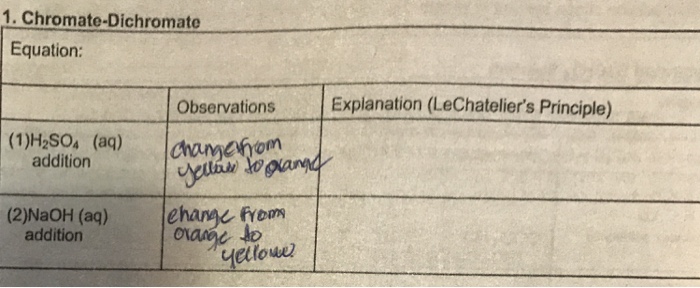 1. Chromate-Dichromate
Equation:
Observations Explanation (LeChatelier's Principle)
(1)H₂SO₄ (aq)
addition
change from
yellow to orange
(2)NaOH (aq)
addition
change from
orange to
yellow